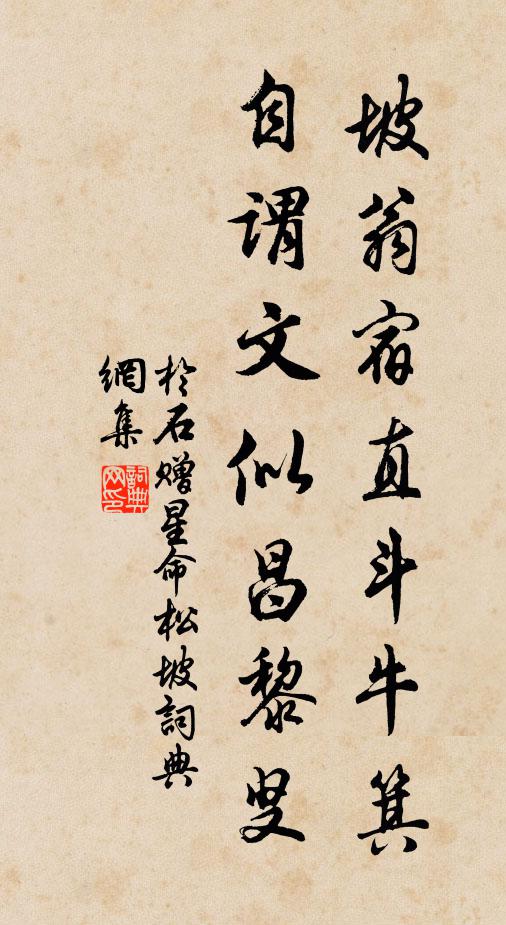 坡翁宿直斗牛箕
自謂文似昌黎叟
於石赠星命松坡詞典
網集
詞典
网印